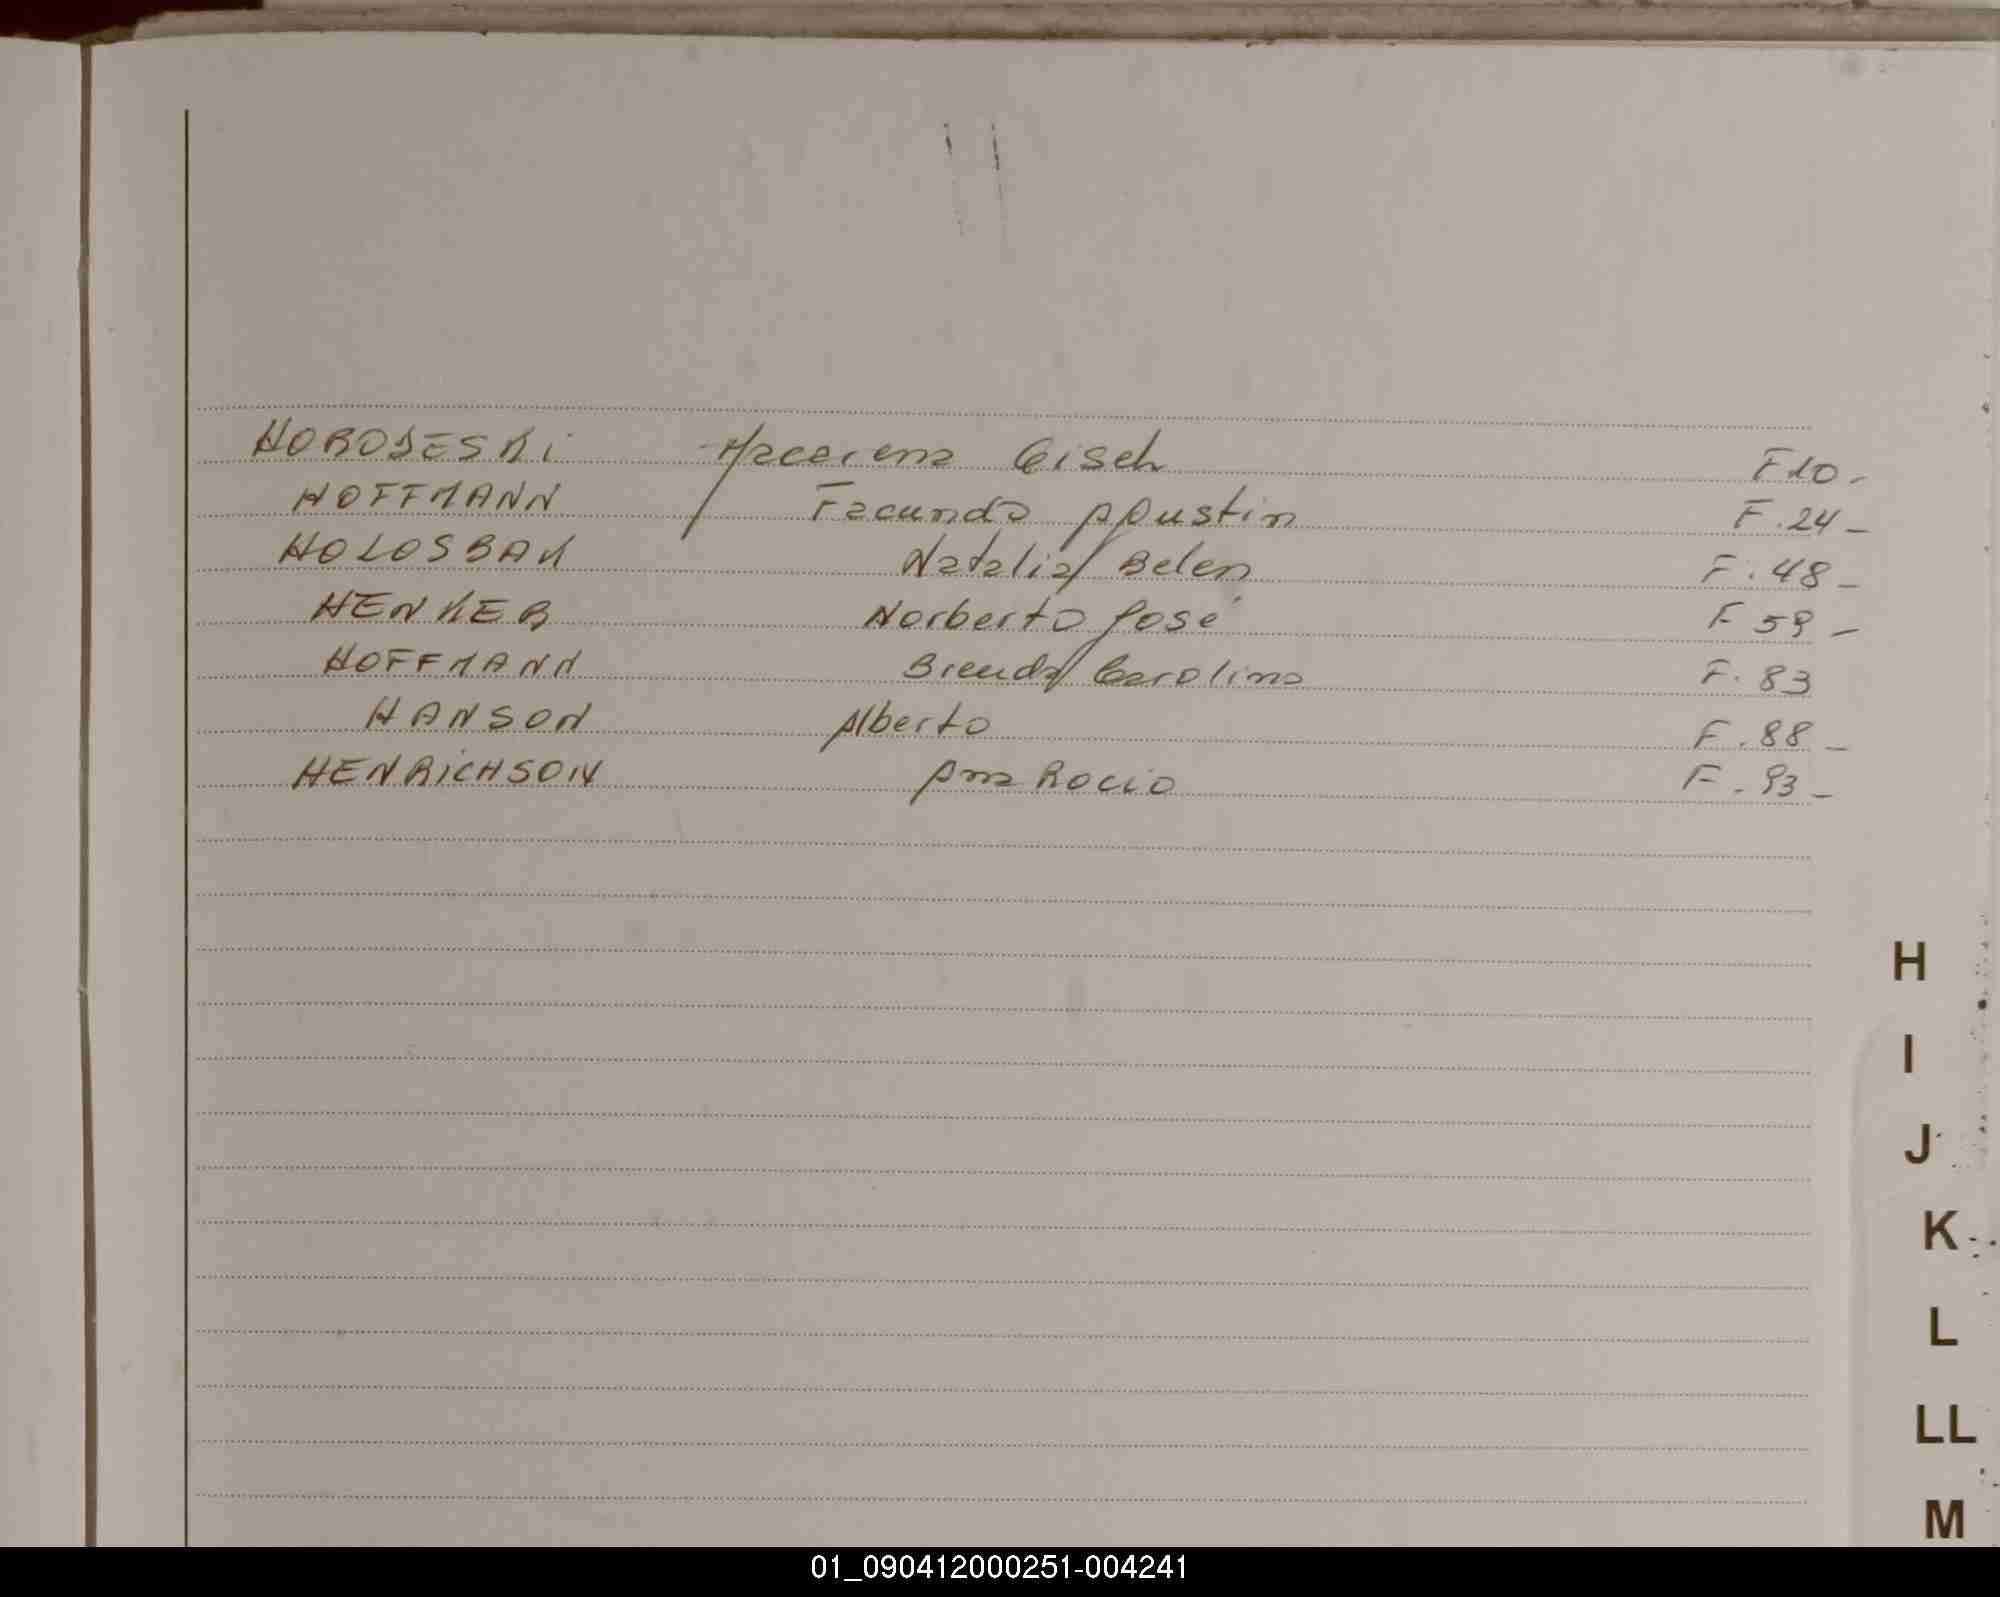 HORODESKI Macarena Gisel F10-
HOFFMANN Facundo Agustin F.24-
HOLOSBAK Natalia Belen F.48-
HENKER Norberto José F 59-
HOFFMANN Brenda Carolina F.83
HANSON Alberto F.88-
HENRICHSON Ana Rocio F.93-
H
I
J
K
L
LL
M
01_090412000251-004241